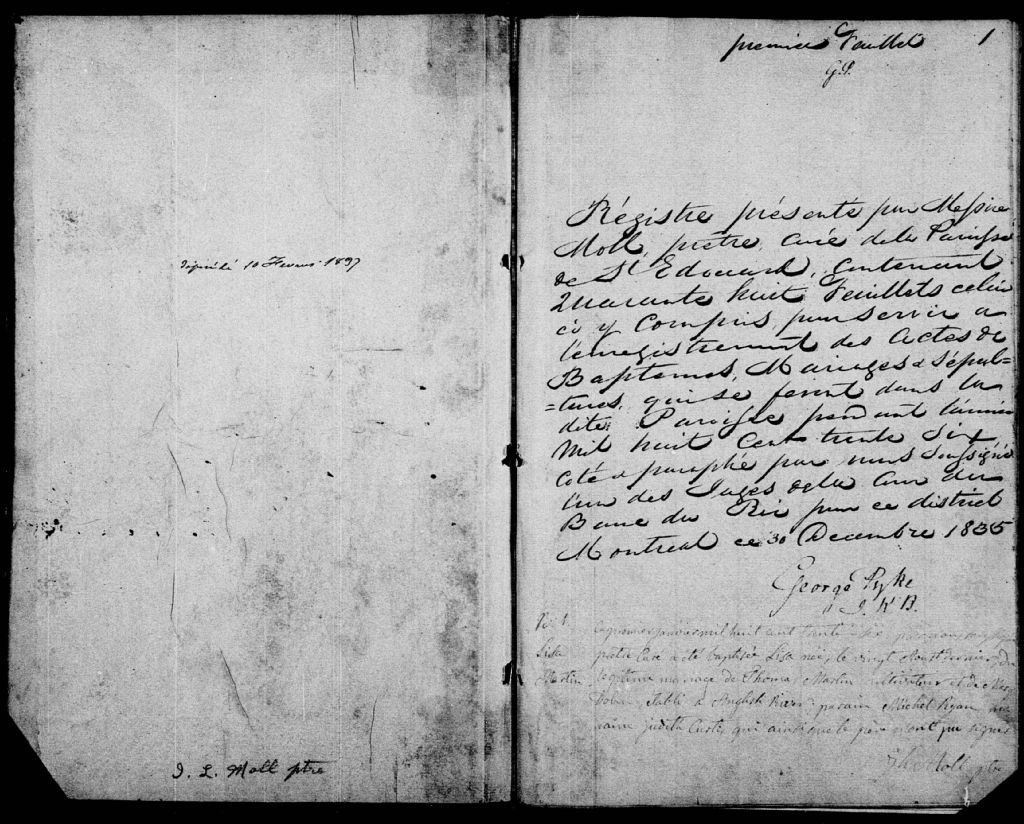 déposé le 10 Février 1897
J. L. Moll ptre
premier Feuillet 1
G.P.
Régistre présenté par Messire
Moll, prêtre, curé de la Paroisse
de St Edouard, contenant
Quarante huit Feuillets celui
ci y Compris, pour servir a
l'enregistrement des Actes de
Baptemes, Mariages & Sépul=
=tures, qui se feront dans la
dite Paroisse pendant l'année
Mil huit Cent trente Six
Coté & paraphé par nous Soussigné
l'un des Juges de la Cour du
Banc du Roi pour ce district
Montreal ce 30 Decembre 1835
George Pyke
a J. K. B.
Lisa
Martin
Le premier janvier mil huit cent trente-six par nous
prêtre Curé a été baptisée Lisa née le vingt Aoust dernier, du
légitime mariage de Thomas Martin cultivateur et de
Dolan établi à English River: parain Michel Ryan, ma
raine judith Curtis, qui ainsi que le père n'ont pu signer
Moll ptre